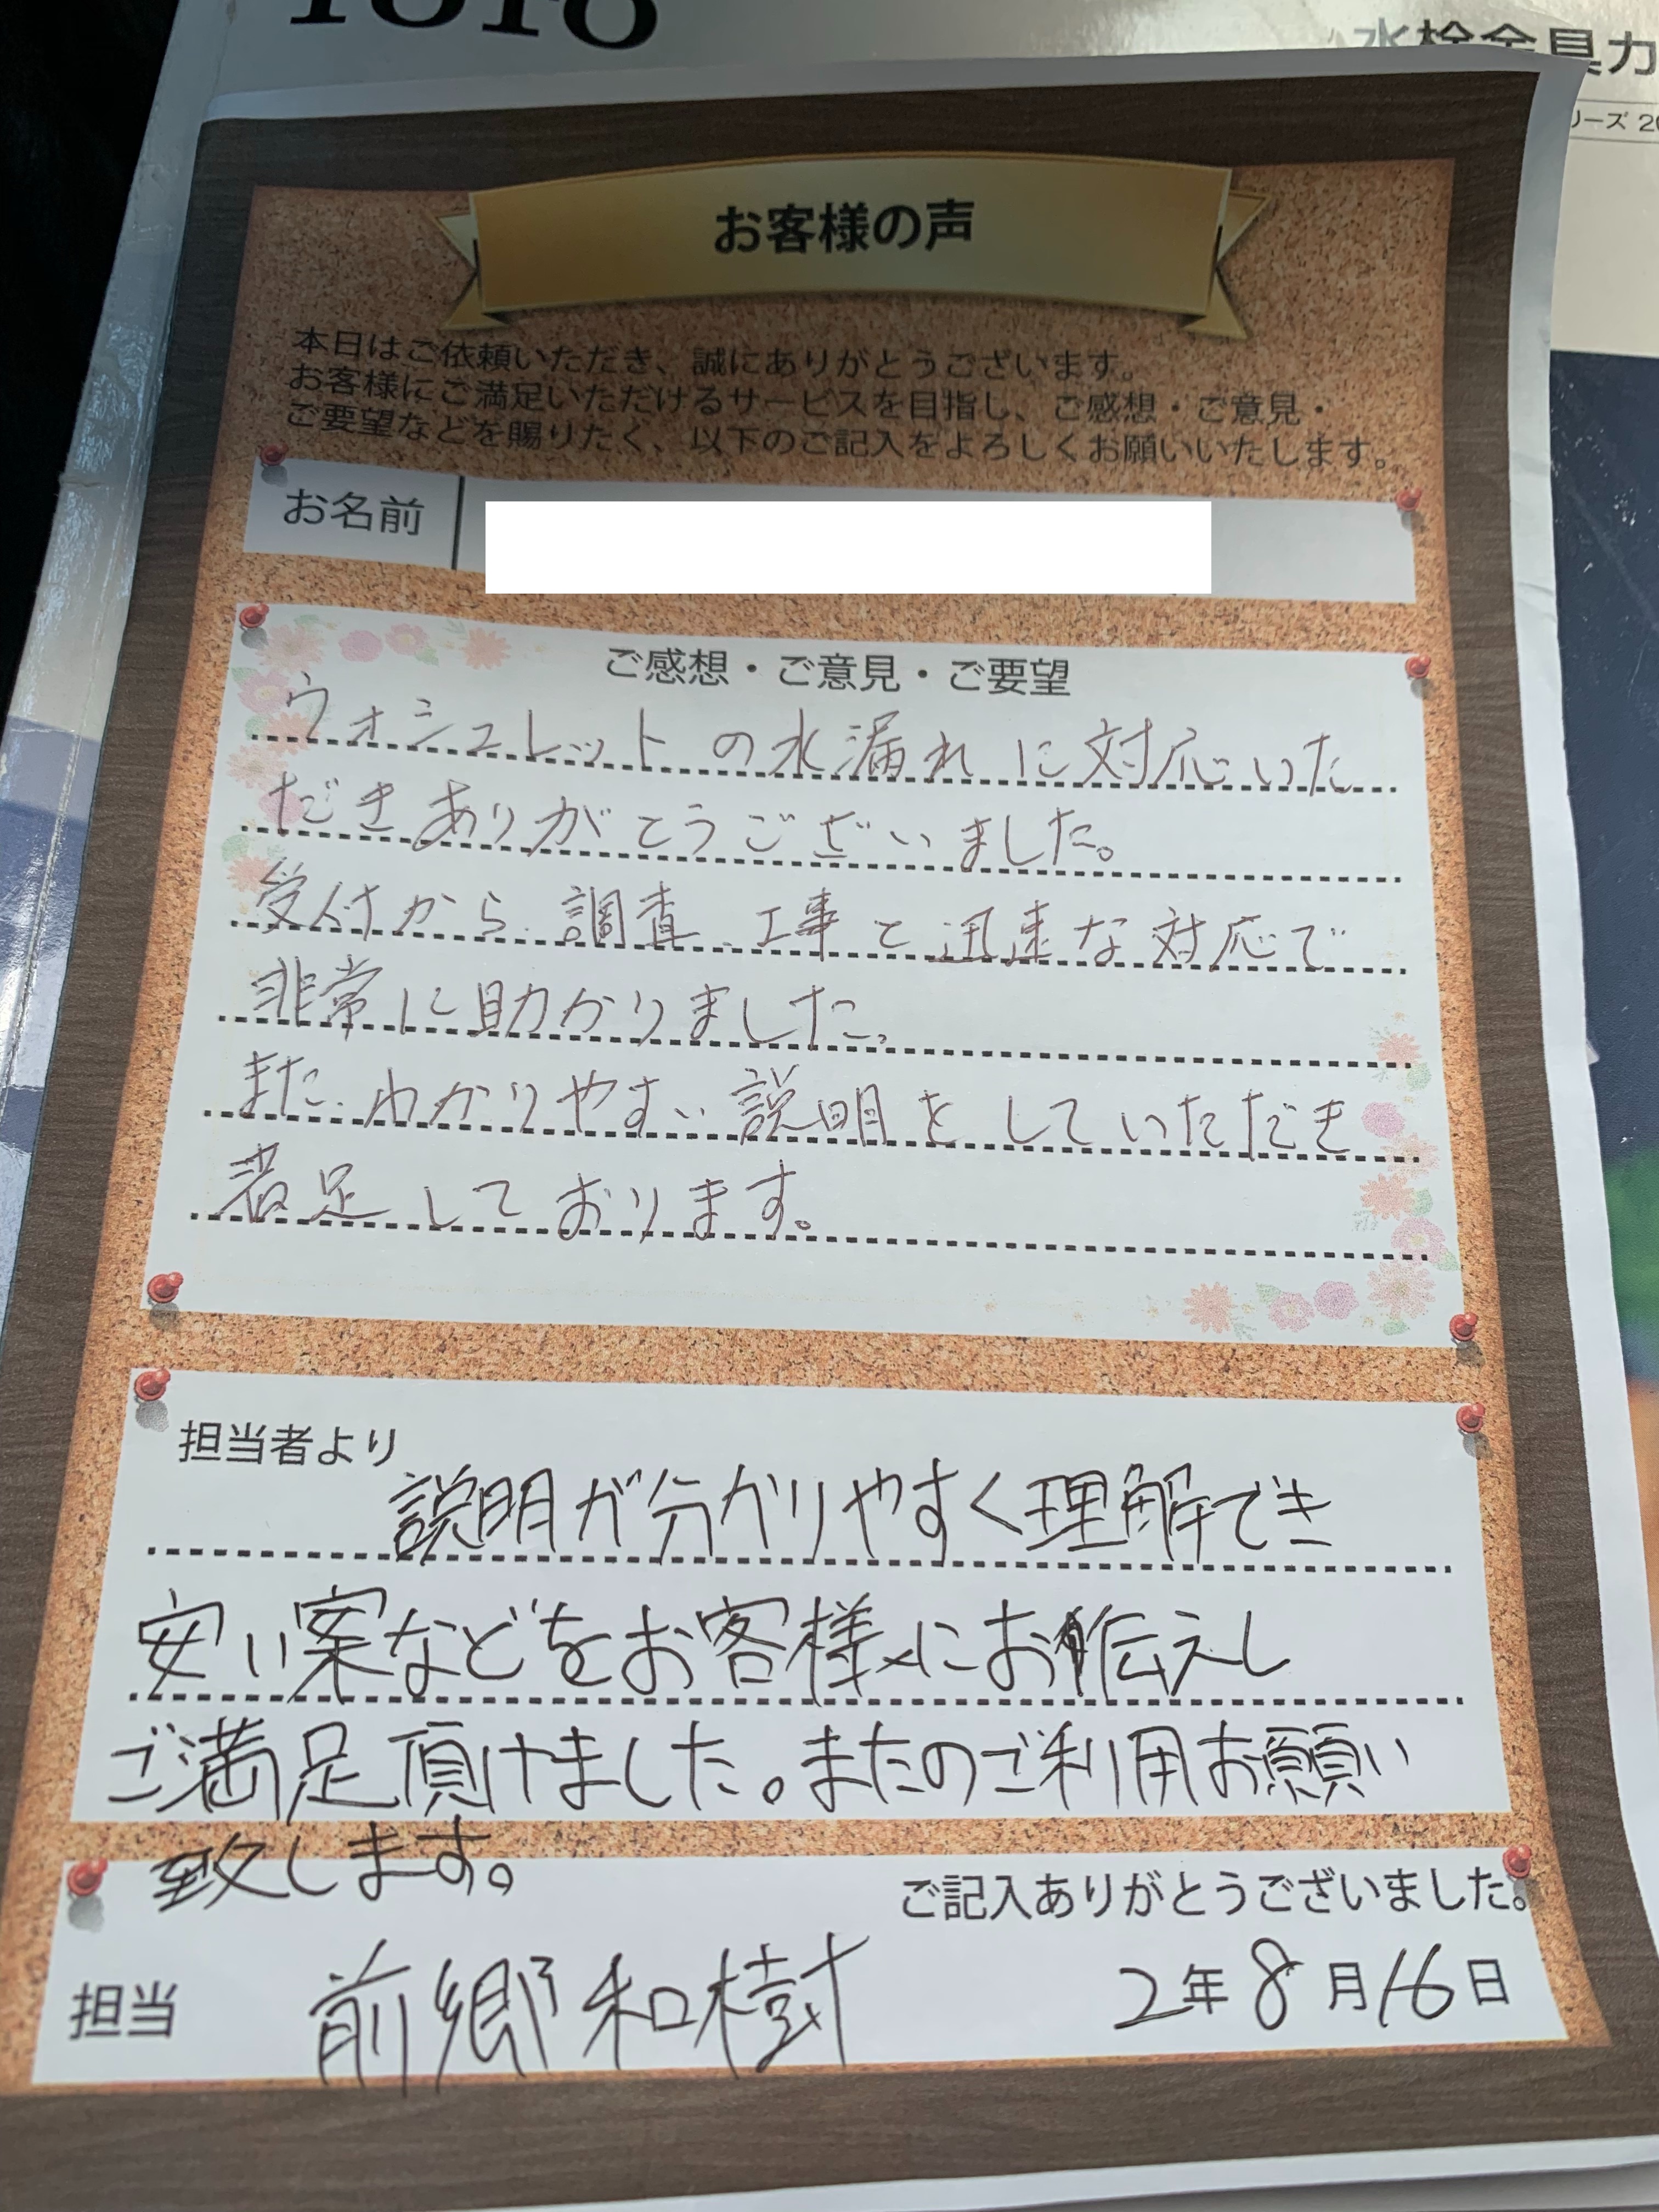 TOTO
水栓金具カ
リーズ 20
お客様の声
本日はご依頼いただき、誠にありがとうございます。
お客様にご満足いただけるサービスを目指し、ご感想・ご意見・
ご要望などを賜りたく、以下のご記入をよろしくお願いいたします。
お名前
ご感想・ご意見・ご要望
ウォシュレットの水漏れに対応いた
だきありがとうございました。
受付から、調査、工事と迅速な対応で
非常に助かりました。
また、わかりやすい説明をしていただき
足しております。
担当者より
説明が分かりやすく理解でき
安い案などをお客様にお伝えし
ご満足頂けました。またのご利用お願い
致します。
ご記入ありがとうございました。
担当 前郷和樹 2年8月16日